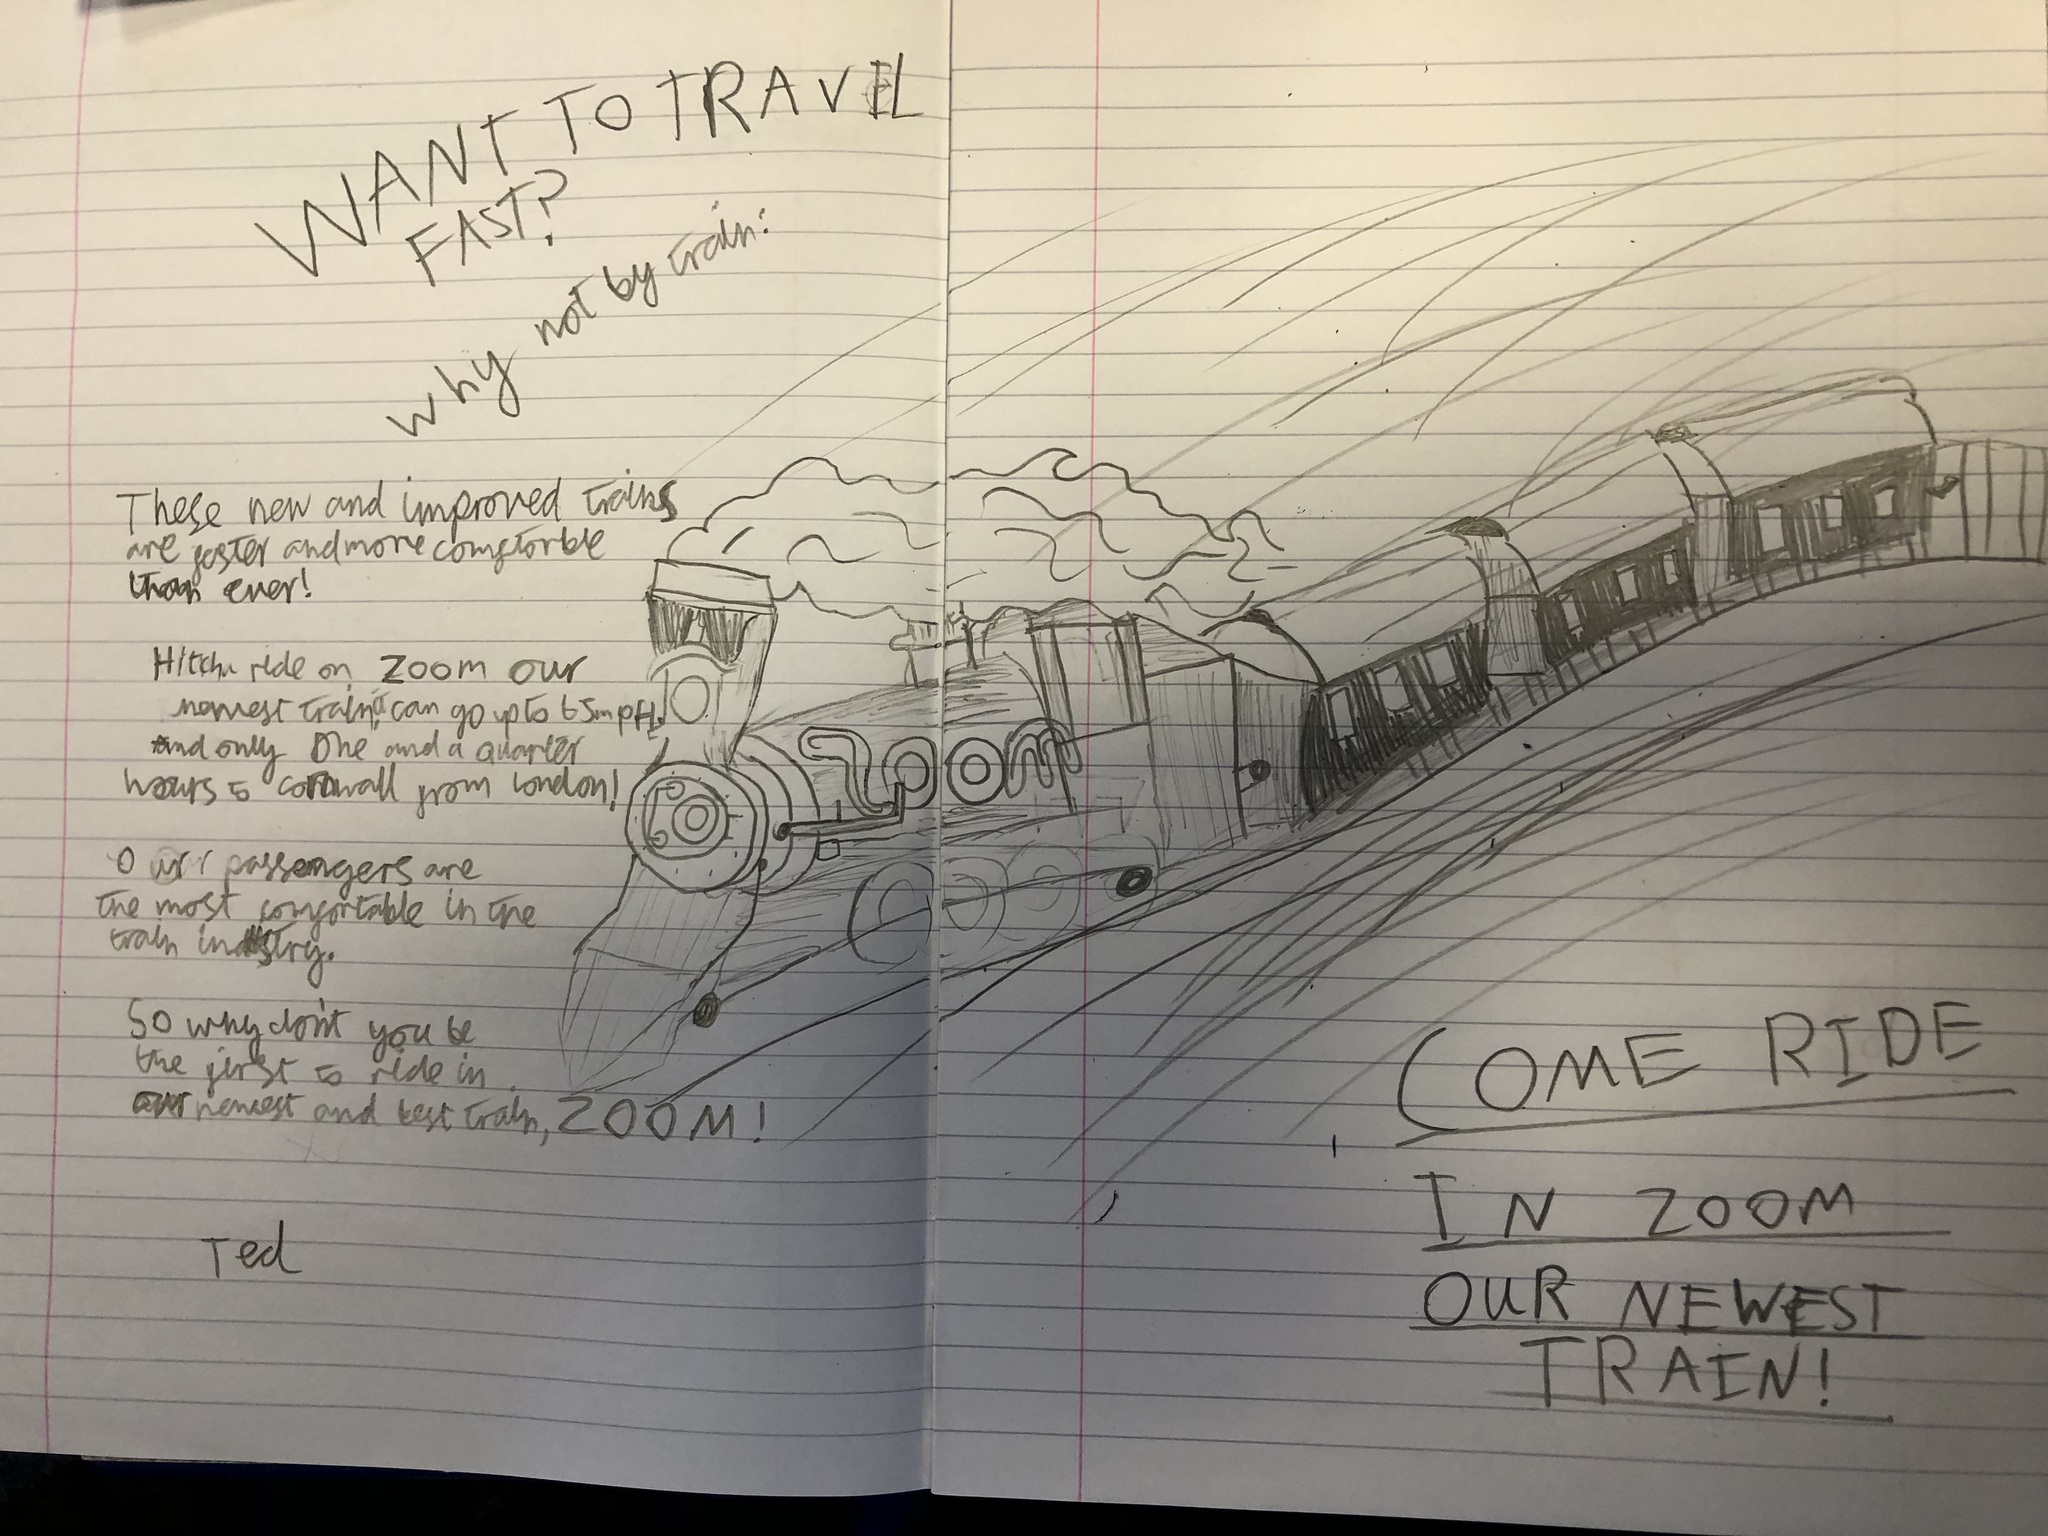 WANT TO TRAVEL
FAST?
Why not by train:
These new and improved trains
are faster and more comftorble
than ever!
Hitch ride on ZOOM our
newest train, it can go up to 65mph
And only one and a quarter
hours to cornwall from london!
Our passengers are
the most comfortable in the
train industry.
So why don't you be
the first to ride in
our newest and best train, ZOOM!
Ted
ZOOM
COME RIDE
IN ZOOM
OUR NEWEST
TRAIN!